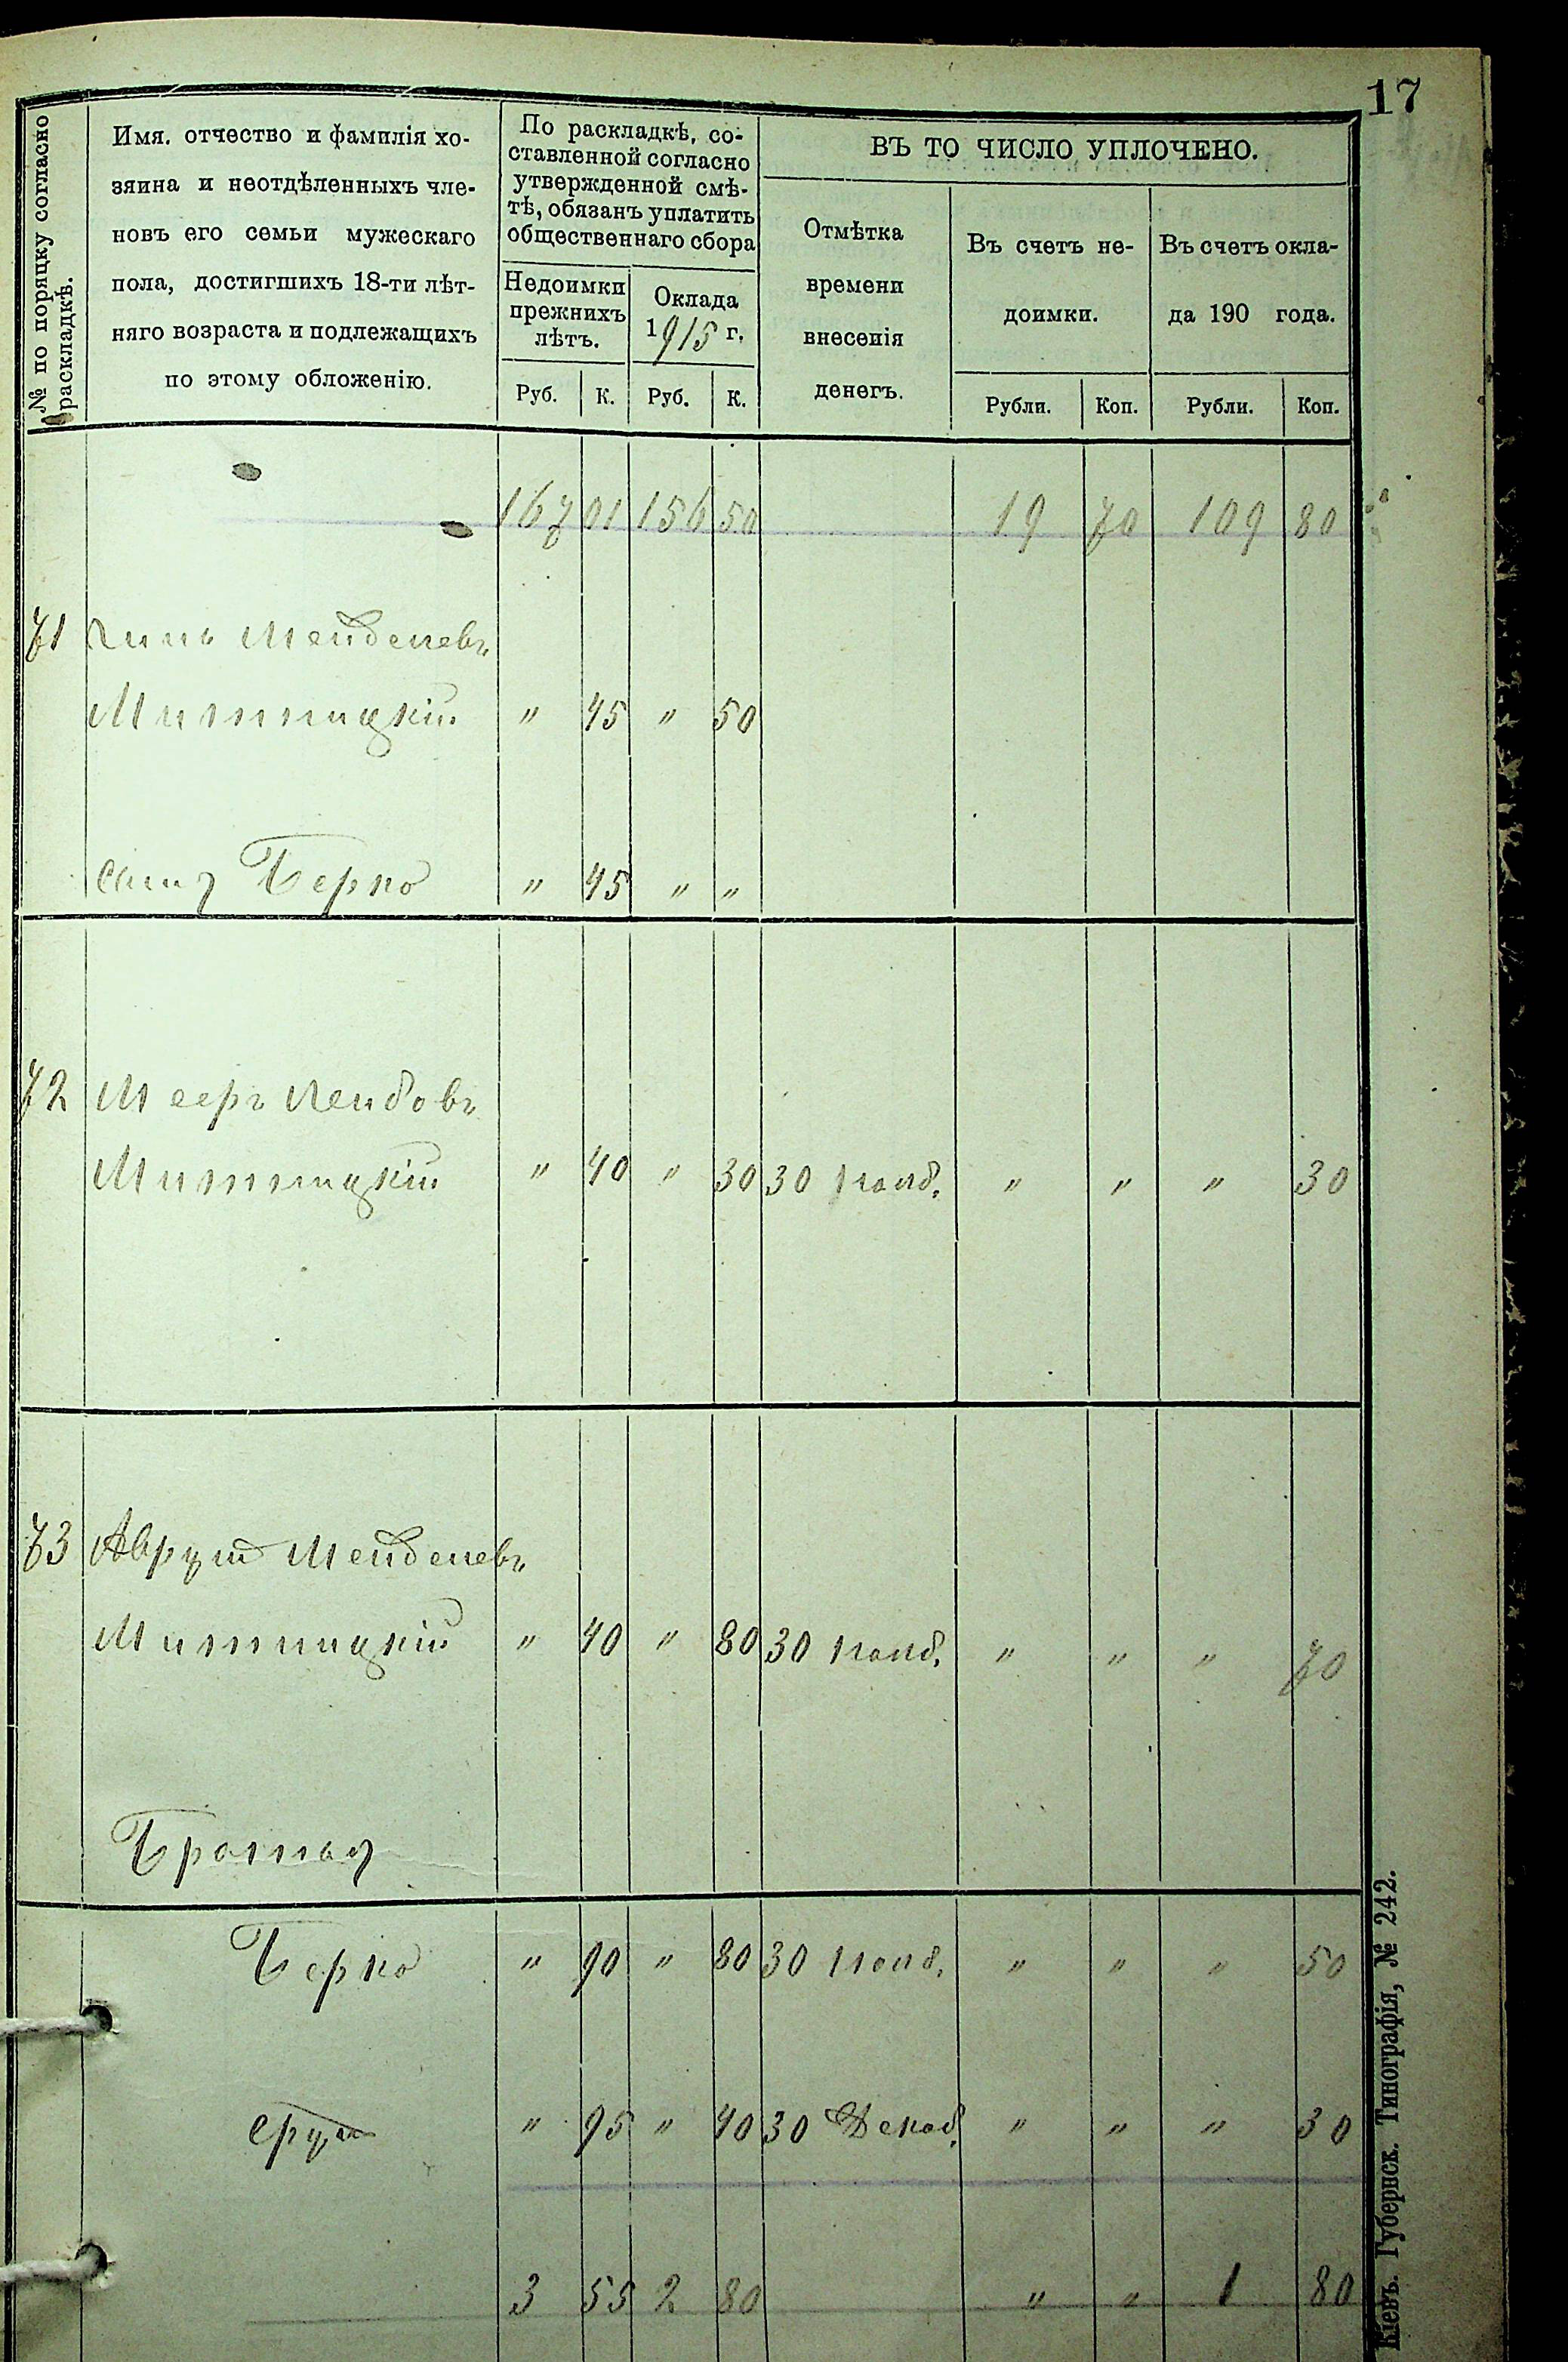 17
№ по порядку согласно раскладкѣ.
Имя. отчество и фамилія хо-
зяина и неотдѣленныхъ чле-
новъ его семьи мужескаго
пола, достигшихъ 18-ти лѣт-
няго возраста и подлежащихъ
по этому обложенію.
По раскладкѣ, со-
ставленной согласно
утвержденной смѣ-
тѣ, обязанъ уплатить
общественнаго сбора
Недоимки
прежнихъ
лѣтъ.
Оклада
1915 г.
Руб. К. Руб. К.
ВЪ ТО ЧИСЛО УПЛОЧЕНО.
Отмѣтка
времени
внесенія
денегъ.
Въ счетъ не-
доимки.
Въ счетъ окла-
да 190 года.
Рубли. Коп. Рубли. Коп.
167 01 156 50 19 70 109 80
71 Мендепевъ
Митницкій " 45 " 50
сынъ Берко " 45 " "
72 Мееръ Лейбовъ
Митницкій " 40 " 30 30 Нояб. " " " 30
73 Аврум Менделевъ
Митницкій " 40 " 80 30 Нояб. " " " 70
Братья
Берко " 90 " 80 30 Нояб. " " " 50
Сруль " 95 " 40 30 Декаб. " " " 30
3 55 2 80 " " 1 80
Кіевъ. Губернск. Типографія, № 242.